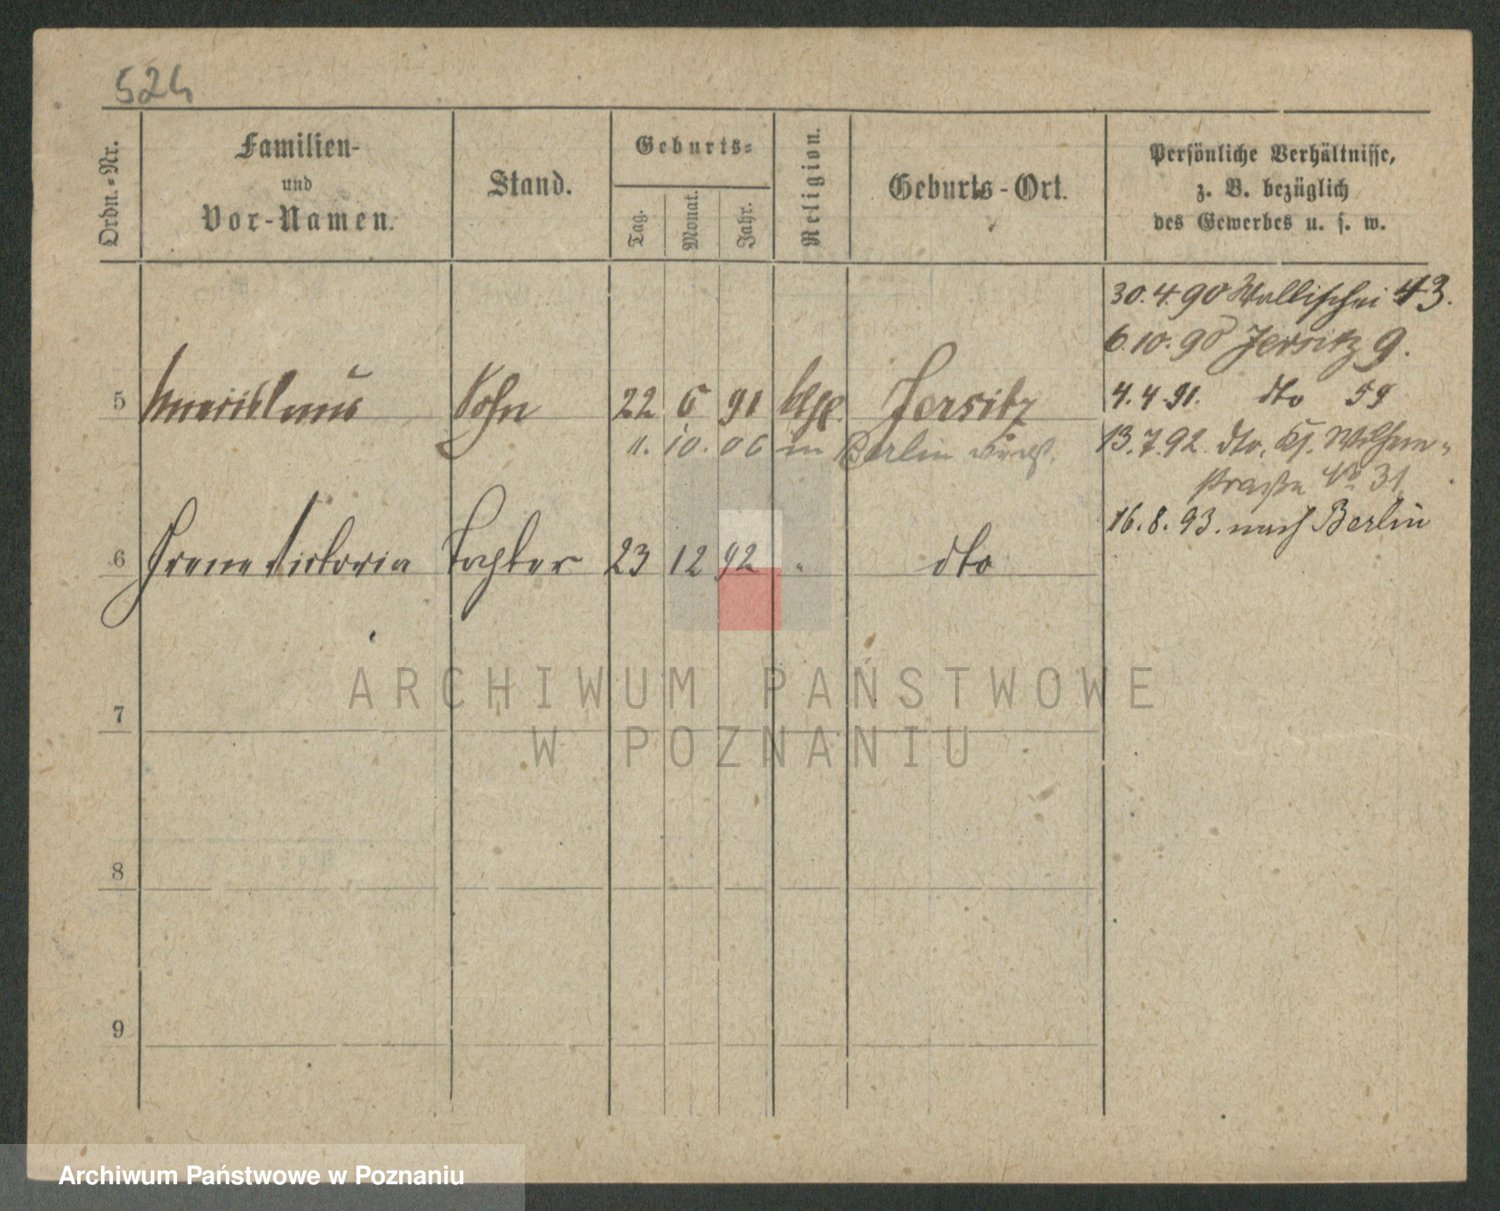 524
Ordn.-Nr.
Familien-
und
Vor-Namen.
Stand.
Geburts-
Tag.
Monat.
Jahr.
Religion.
Geburts-Ort.
Persönliche Verhältnisse,
z. B. bezüglich
des Gewerbes u. s. w.
30.4.90 Wallischei 43.
6.10.90 Jersitz 9.
4.4.91. dto 59
5 Sohn 22 6 91 Jersitz
11. 10. 06 in Berlin
13.7.92. dto, Wilhelm-
straße No 31.
16.8.93. nach Berlin
6 Irene Victoria Tochter 23 12 92 " dto
7
8
9
ARCHIWUM PAŃSTWOWE
W POZNANIU
Archiwum Państwowe w Poznaniu